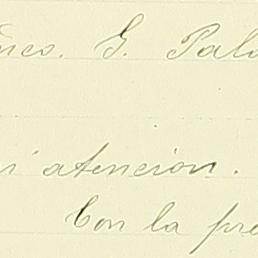 G. Pal
atencion.
Con la pre